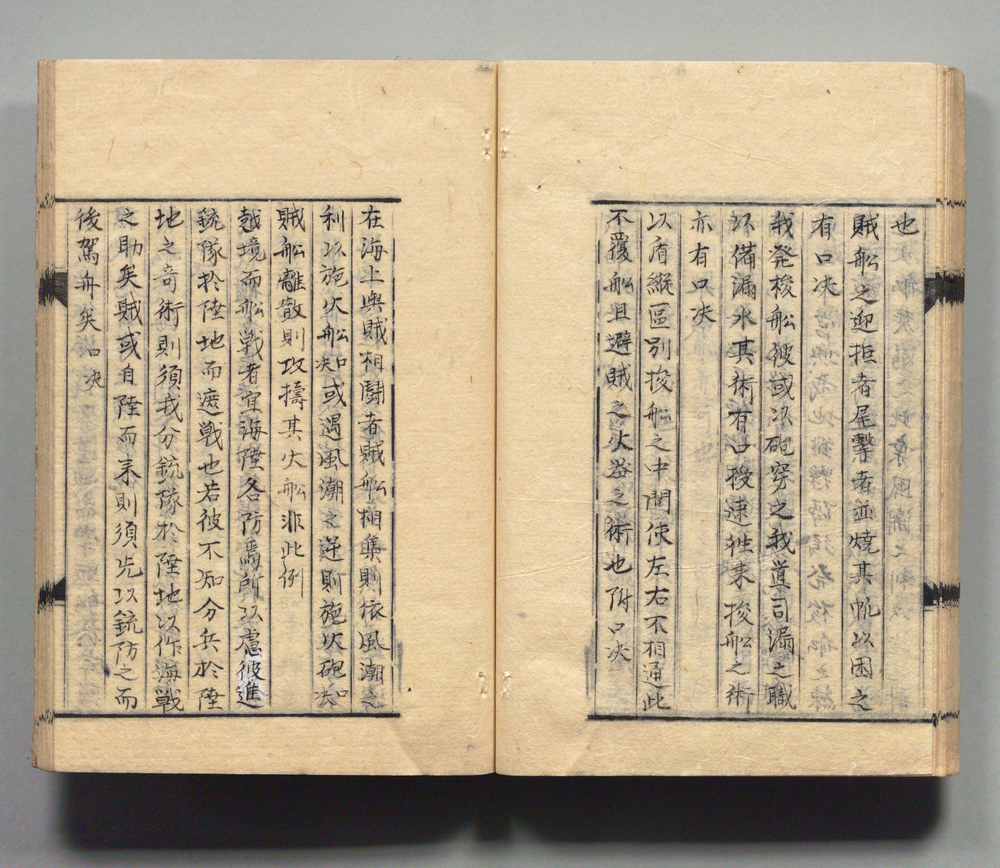 也
賊船之迎拒者尾擊者並燒其帆以困之
有口决
我発梭船彼或以砲穿之我導司漏之職
以備漏水其術有口授速往来梭船之術
亦有口决
以盾縦區別梭船之中間使左右不相通此
不覆船且避賊之火器之術也附口决
在海上與賊相鬪者賊船相集則依風潮之
利以施火船如决或遇風潮之逆則施火砲如决
賊船離散則攻擣其火船非此例
越境而船戦者宜海陸各防焉所以慮彼進
銃隊於陸地而遮戦也若彼不知分兵於陸
地之奇術則須我分銃隊於陸地以作海戦
之助矣賊或自陸而来則須先以銃防之而
後駕舟矣口决